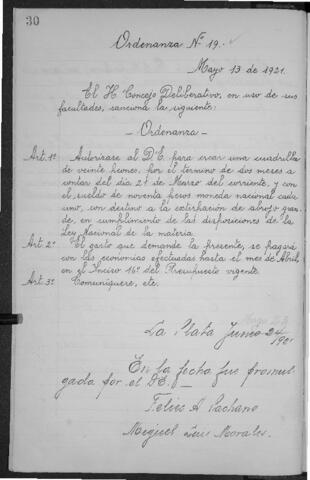 30
Ordenanza Nº 19.
Mayo 13 de 1921.
El H. Concejo Deliberativo, en uso de sus
facultades, sanciona la siguiente:
-Ordenanza-
Art. 1º Autorízase al D.E. para crear una cuadrilla
de veinte hombres, por el término de dos meses a
contar del día 2 de Marzo del corriente, y con
el sueldo de noventa pesos moneda nacional cada
uno, con destino a la extirpación de abrojo gran-
de, en cumplimiento de las disposiciones de la
Ley Nacional de la materia.
Art. 2º El gasto que demande la presente, se pagará
con las economías efectuadas hasta el mes de Abril,
en el Inciso 16º del Presupuesto vigente.
Art. 3º Comuníquese, etc.
La Plata Junio 24/921
En la fecha fue promul
gada por el DE.
Felies A Pachano
Miguel Luis Morales.